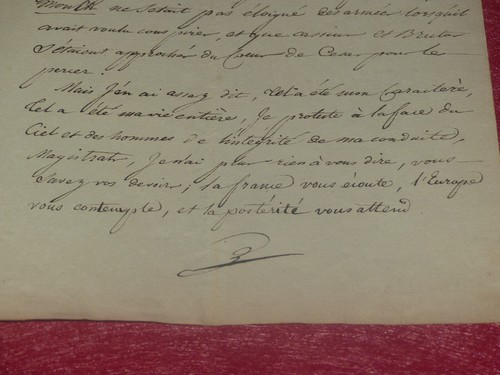 Monk ne s'etait pas éloigné des armées lorsqu'il
avait voulu conspirer, et que cassius et Brutus
s'etaient approchés du Cœur de Cesar pour le
percer.
Mais j'en ai assez dit, tel a été mon Caractère,
tel a été ma vie entière, Je proteste à la face du
Ciel et des hommes de l'integrité de ma conduite,
Magistrats, Je n'ai plus rien à vous dire, vous
Savez vos devoirs; la france vous écoute, l'Europe
vous contemple, et la postérité vous attend